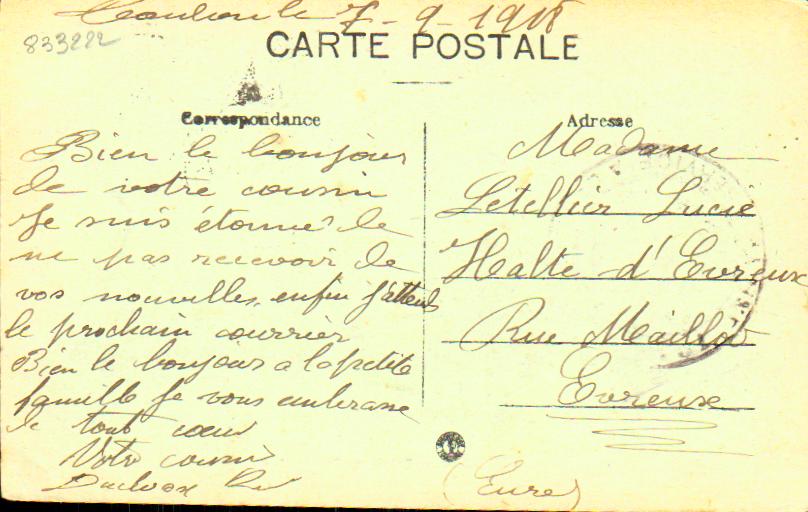 Toulon le 7-9-1918
833222
CARTE POSTALE
Correspondance
Bien le bonjour
de votre cousin
Je suis étonné de
ne pas recevoir de
vos nouvelles, enfin j'attends
le prochain courrier
Bien le bonjour a la petite
famille Je vous embrasse
de tout cœur
Votre cousin
Adresse
Madame
Letellier Lucie
Halte d'Evreux
Rue Maillot
Evreux
(Eure)